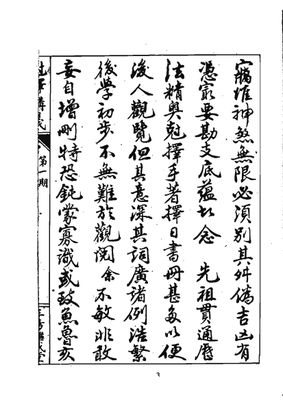 竊惟神煞無限必須別其舛偽吉凶有
憑最要勘支底蘊念 先祖貫通曆
法精奧剋擇手著擇日書冊甚多以便
後人觀覽但其意深其詞廣諸例浩繁
後學初步不無難於觀閱余不敏非敢
妄自增刪特恐鈍蒙寡識或致魚魯亥
第一期